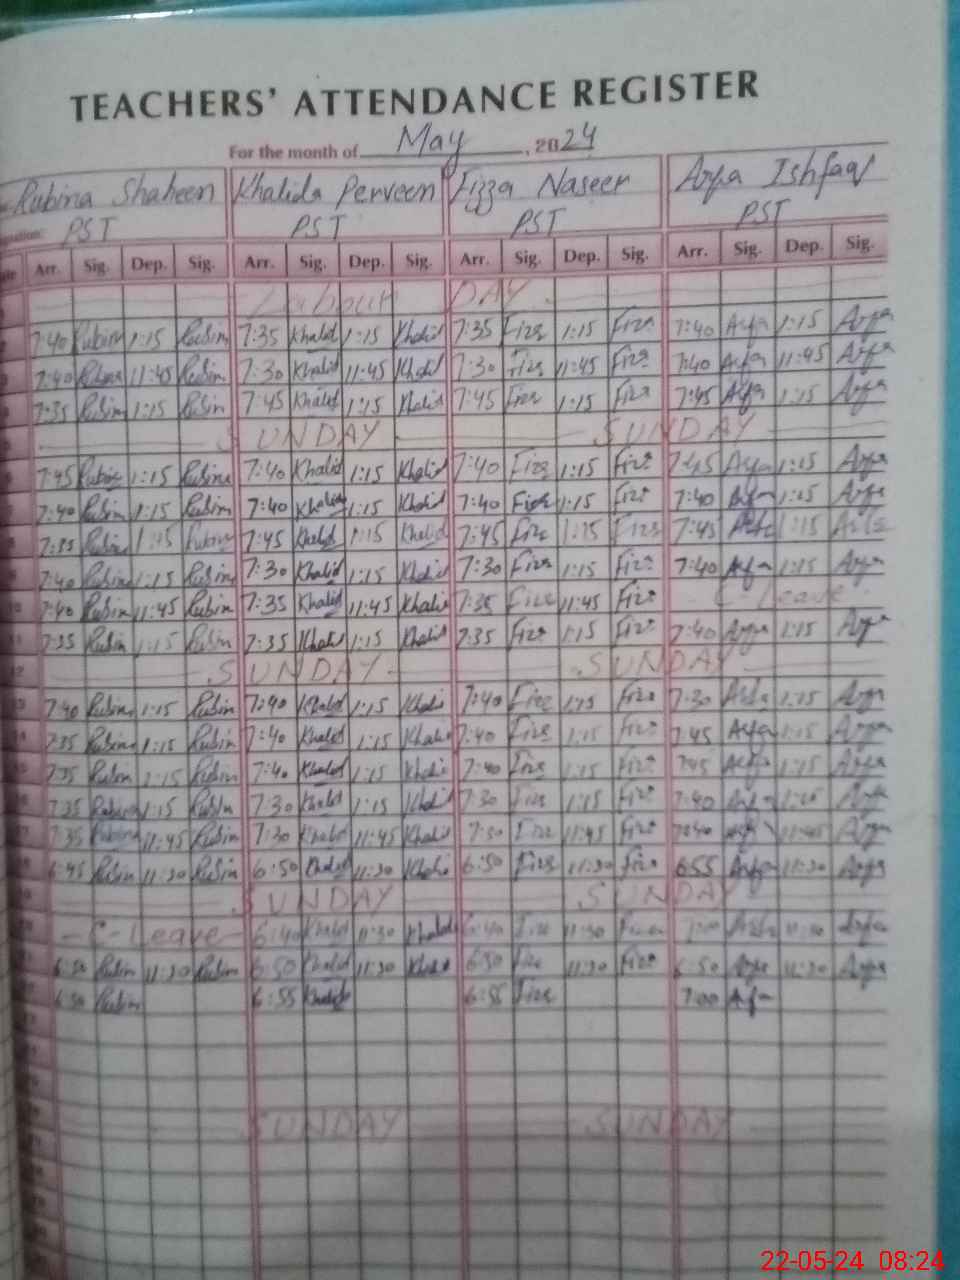 TEACHERS' ATTENDANCE REGISTER
For the month of May, 2024
Rubina Shaheen Khalida Perveen Fizza Naseer Arfa Ishfaq
PST PST PST PST
Arr. Sig. Dep. Sig. Arr. Sig. Dep. Sig. Arr. Sig. Dep. Sig. Arr. Sig. Dep. Sig.
Labour DAY
7:40 Rubin 1:15 Rubin 7:35 Khalid 1:15 Khalid 7:35 Fiza 1:15 Fiza 7:40 Arfa 1:15 Arfa
7:40 11:45 Rubin 7:30 Khalid 11:45 Khalid 7:30 Fiza 11:45 Fiza 7:40 Arfa 11:45 Arfa
7:35 Rubin 1:15 Rubin 7:45 Khalid 1:15 Khalid 7:45 Fiza 1:15 Fiza 7:45 Arfa 1:15 Arfa
SUNDAY SUNDAY
7:45 1:15 Rubina 7:40 Khalid 1:15 Khalid 7:40 Fiza 1:15 Fiza 7:45 Arfa 1:15 Arfa
7:40 Rubin 1:15 Rubin 7:40 Khalid 1:15 Khalid 7:40 Fiza 1:15 Fiza 7:40 Arfa 1:15 Arfa
7:35 Rubin 7:45 Khalid 1:15 Khalid 7:45 Fiza 1:15 Fiza 7:45 1:15
7:40 Rubina 1:15 Rubin 7:30 Khalid 1:15 Khalid 7:30 Fiza 1:15 Fiza 7:40 Arfa 1:15 Arfa
7:40 Rubin 11:45 Rubin 7:35 Khalid 11:45 Khalid 7:35 11:45 Fiza C-Leave
7:35 Rubin 1:15 Rubin 7:35 Khalid 1:15 Khalid 7:35 Fiza 1:15 Fiza 7:40 Arfa 1:15 Arfa
12 SUNDAY SUNDAY
7:40 Rubin 1:15 Rubin 7:40 Khalid 1:15 Khalid 7:40 Fiza 1:15 Fiza 7:30 1:15 Arfa
7:35 Rubina 1:15 Rubin 7:40 Khalid 1:15 Khalid 7:40 Fiza 1:15 Fiza 7:45 Arfa 1:15 Arfa
7:35 Rubin 1:15 Rubin 7:40 Khalid 1:15 Khalid 7:40 Fiza 1:15 Fiza 7:45 Arfa 1:15 Arfa
7:35 Rubina 1:15 Rubin 7:30 Khalid 1:15 Khalid 7:30 Fiza 1:15 Fiza 7:40 Arfa Arfa
7:35 Rubina 11:45 Rubin 7:30 Khalid 11:45 Khalid 7:30 Fiza 11:45 Fiza 7:40 11:45 Arfa
6:45 Rubin 11:30 Rubin 6:50 Khalid 11:30 Khalid 6:50 Fiza 11:30 Fiza 6:55 Arfa 11:30 Arfa
SUNDAY SUNDAY
C-Leave 6:40 Khalid 11:30 Khalid 6:40 11:30 7:00 11:30 Arfa
6:50 Rubin 11:30 Rubin 6:50 Khalid 11:30 Khalid 6:50 Fiza 11:30 Fiza 6:50 Arfa 11:30 Arfa
6:50 Rubin 6:55 Khalid 6:55 Fiza 7:00 Arfa
SUNDAY SUNDAY
22-05-24 08:24